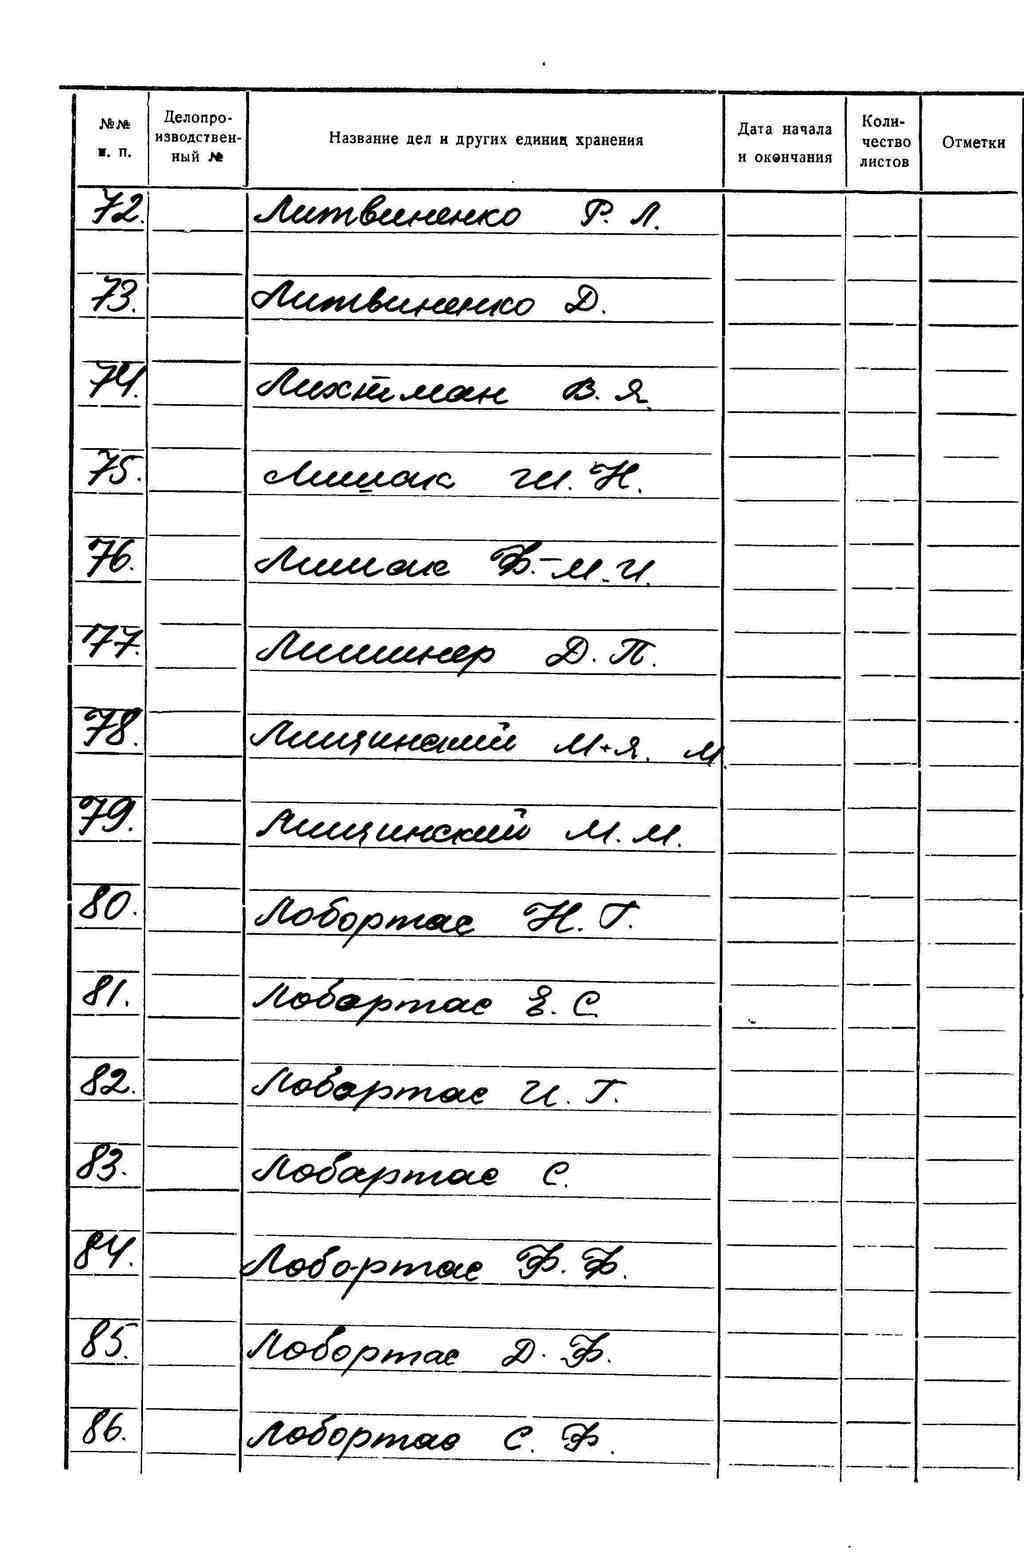 №№ п. п. Делопроизводственный № Название дел и других единиц хранения Дата начала и окончания Количество листов Отметки
72. Литвиненко Р. Л.
73. Литвиненко Д.
74. Лихтман В. Я.
75. Лишак Ш. Н.
76. Лишак Ф.-М. И.
77. Лишинер Д. П.
78. Лищинский М+Я. М.
79. Лищинский М. М.
80. Лобортас Н. Г.
81. Лобортас Е. С.
82. Лобортас И. Г.
83. Лобартас С.
84. Лобортас Ф. Ф.
85. Лобортас Д. Ф.
86. Лобортас С. Ф.